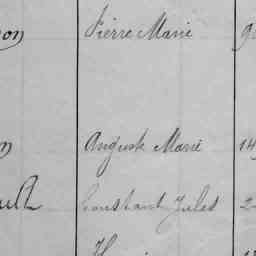 on Pierre Marie 9
n Auguste Marie 14
ult Constant Jules 2
H